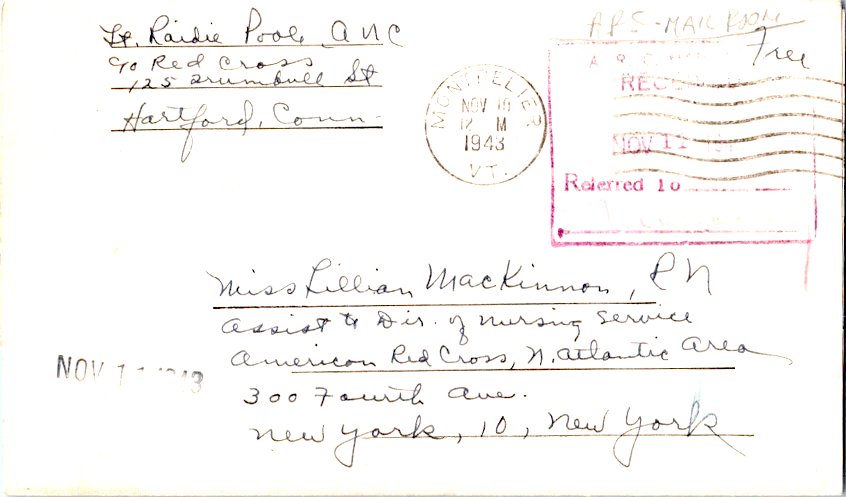 Lt. Raidie Poole, ANC
c/o Red Cross
125 Trumbull St
Hartford, Conn.
ARS - MAIL ROOM
Free
MONTPELIER
NOV 10
12 M
1943
VT.
NOV 11
Referred To
Miss Lillian MacKinnon, RN
Assist to Dir. of Nursing Service
American Red Cross, N. Atlantic Area
300 Fourth Ave.
New York, 10, New York
NOV 11 1943